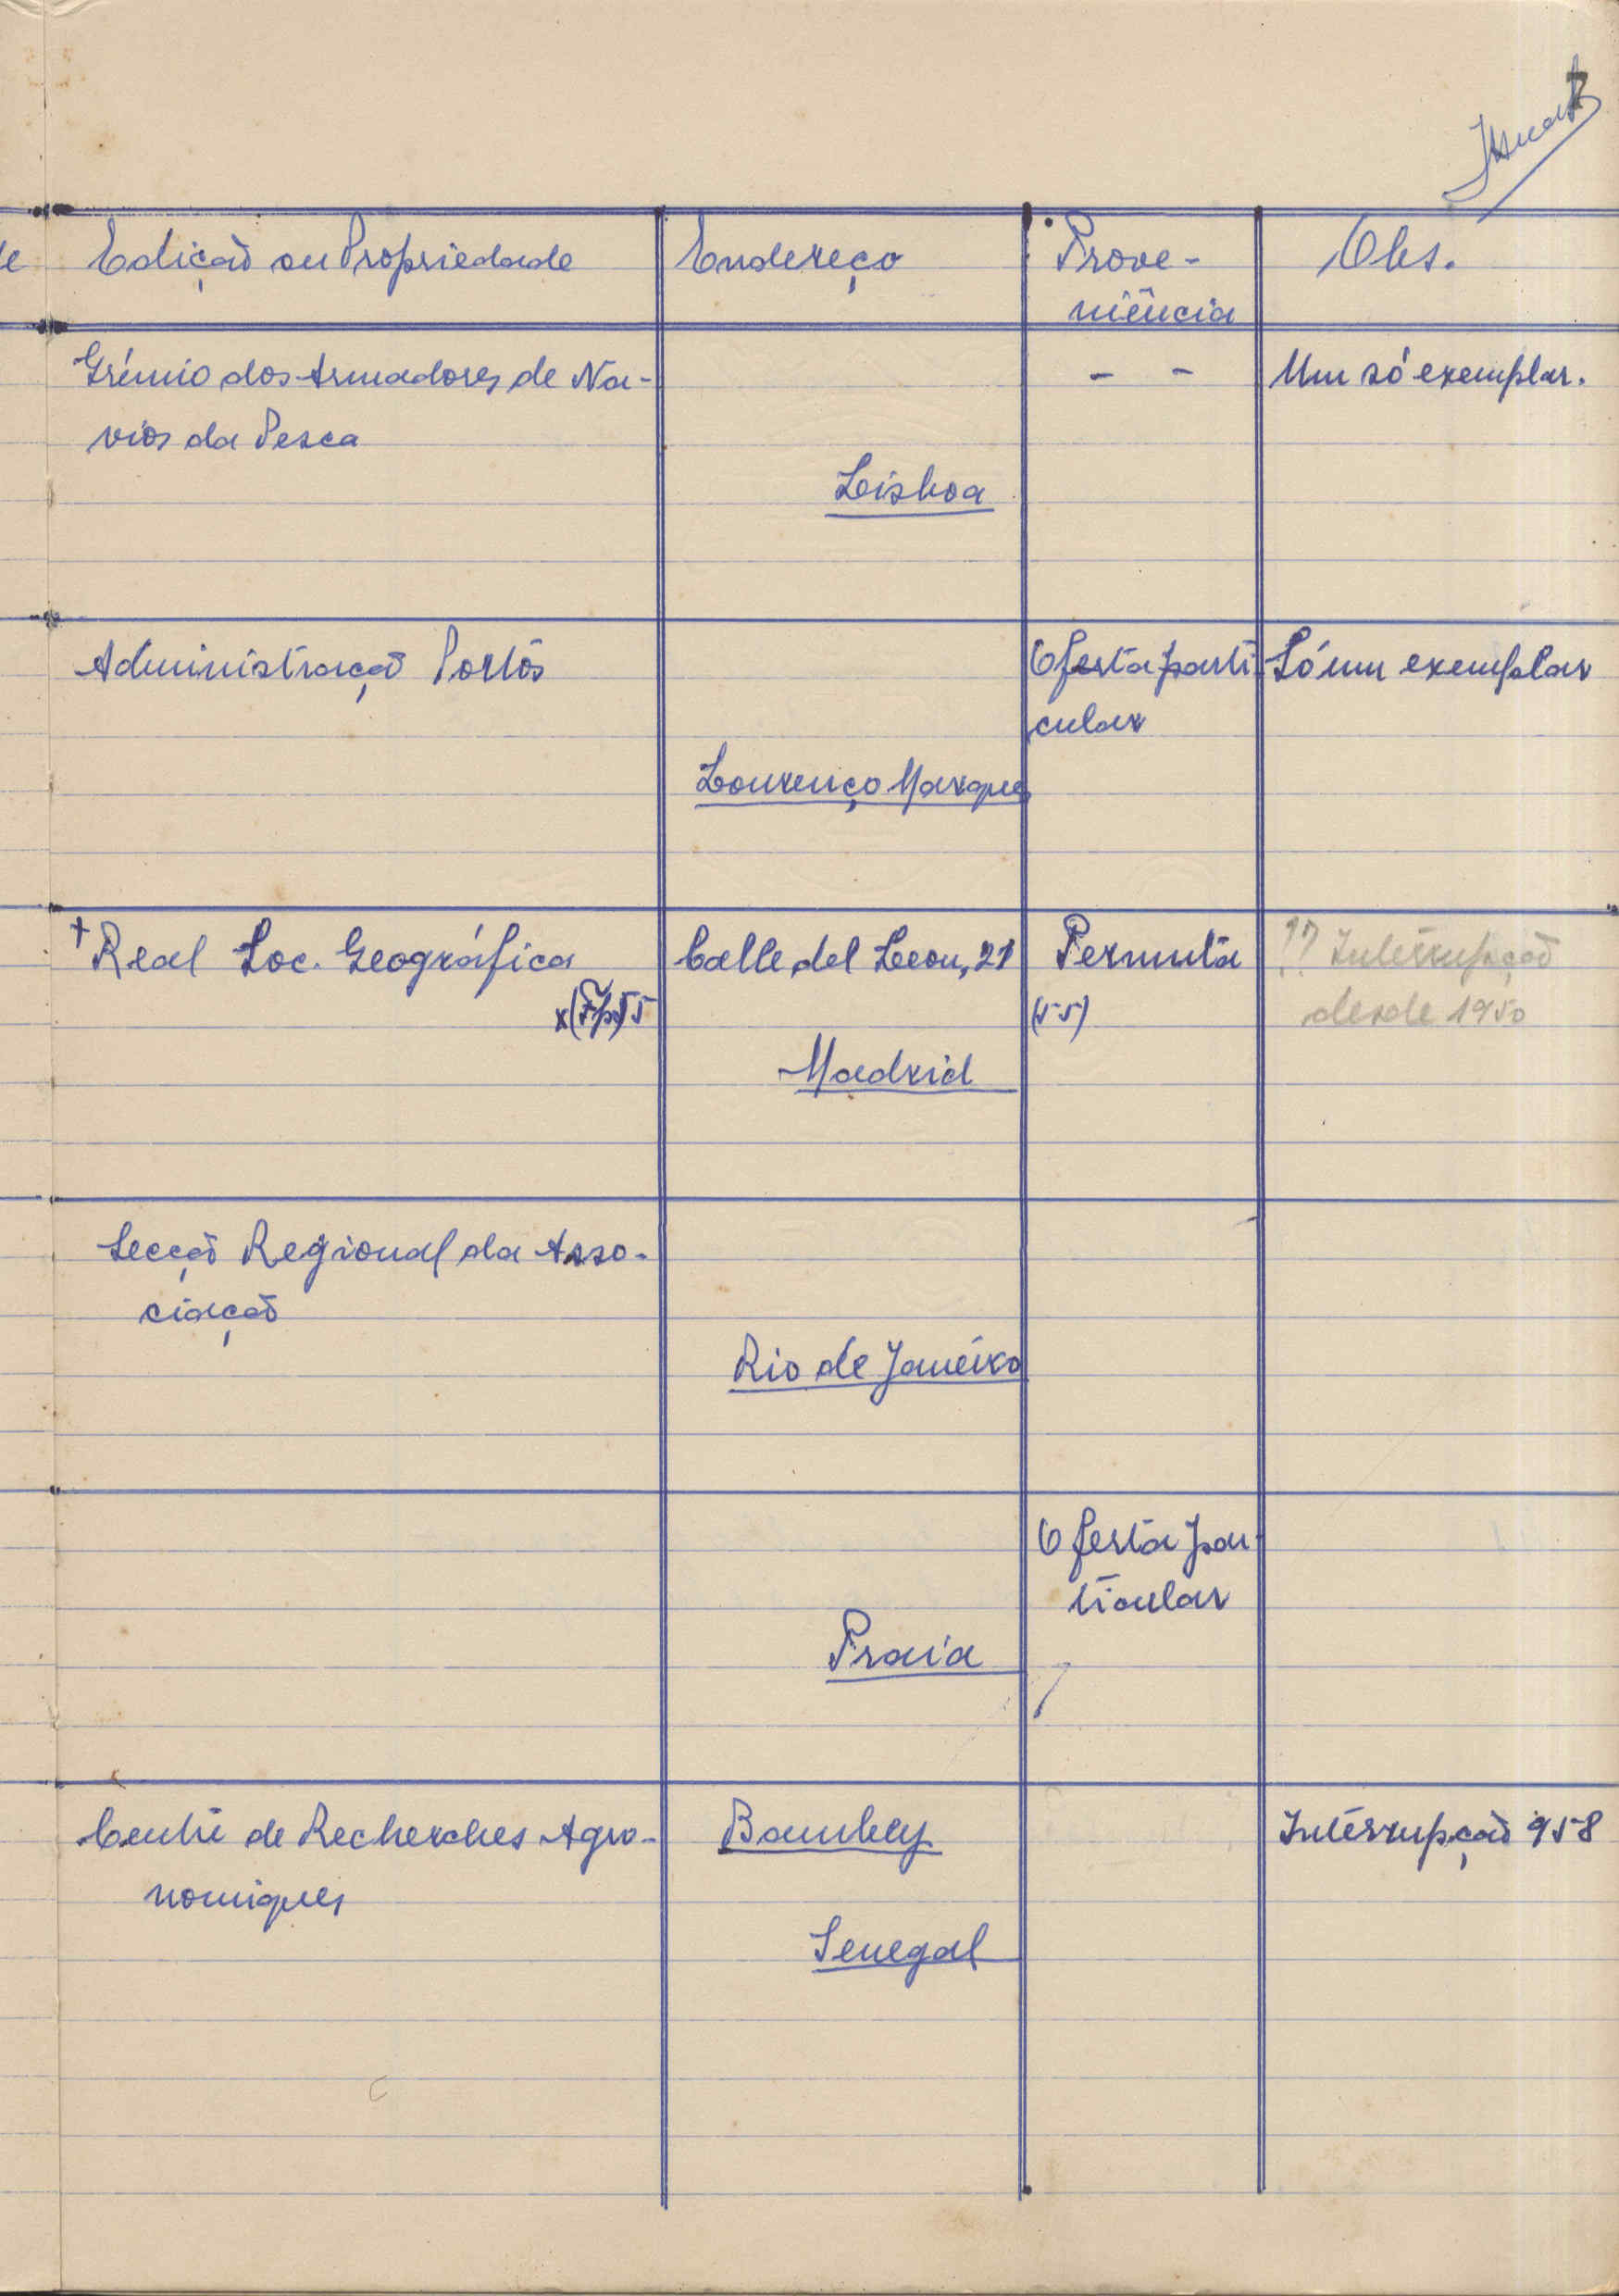 7
Edição ou Propriedade Endereço Prove- Obs.
niência
Grémio dos Armadores de Na- - - Um só exemplar.
vios da Pesca
Lisboa
Administração Portos Oferta parti Só um exemplar
cular
Lourenço Marques
+ Real Soc. Geográfica Calle del Leon, 21 Permuta !? Interrupção
55 (55) desde 1950
Madrid
Secção Regional da Asso-
ciação
Rio de Janeiro
Oferta par-
ticular
Praia
Centre de Recherches Agro- Bambey Interrupção 958
nomiques
Senegal